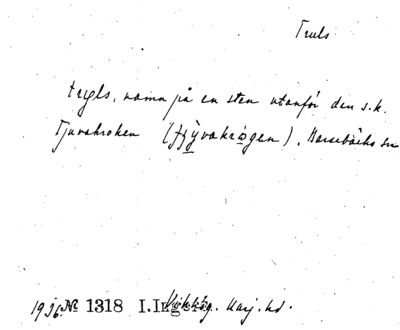 Truls
trygls, namn på en sten utanför den s.k.
Tjuvakroken (tjyvakrogen), Barsebäcks sn
1936. № 1318 I.Ing Harj. hd.